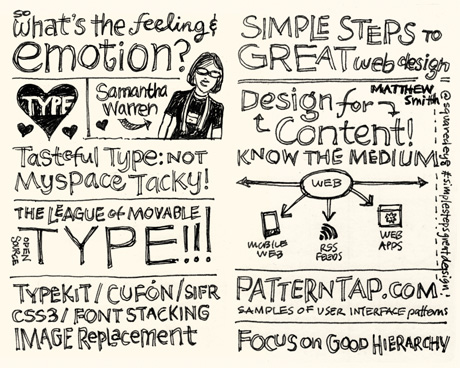 so
what's the feeling &
emotion?
TYPE
Samantha
Warren
Tasteful Type: NOT
Myspace Tacky!
THE LEAGUE of MOVABLE
OPEN SORCE
TYPE!!!
TYPEKIT / CUFÓN / SIFR
CSS3 / FONT STACKING
IMAGE Replacement
SIMPLE STEPS TO
GREAT web design
MATTHEW
Smith
@squaredeye #simplestepsgreatdesign!
Design for
Content!
KNOW THE MEDIUM!
WEB
MOBILE
WEB
RSS
FEEDS
WEB
APPS
PATTERNTAP.COM
SAMPLES OF USER INTERFACE patterns
FOCUS ON GOOD HIERARCHY